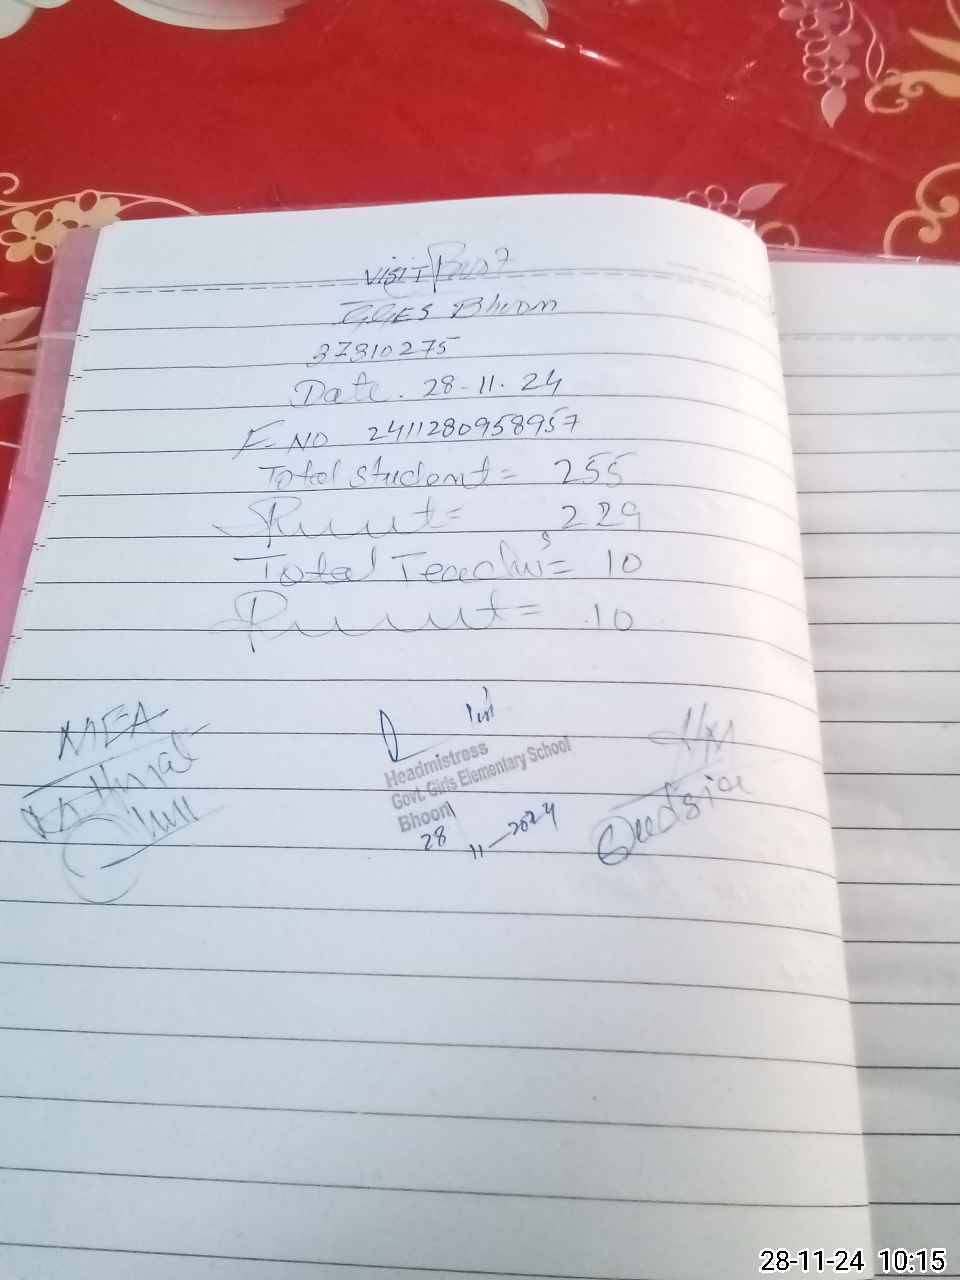 VISIT
GGES Bhoon
37310275
Date. 28-11.24
F NO 2411280958957
Total student = 255
Present = 229
Total Teachers = 10
Present = 10
MEA
Headmistress
Govt. Girls Elementary School
Bhoon
28-11-2024
Qudsia
28-11-24 10:15